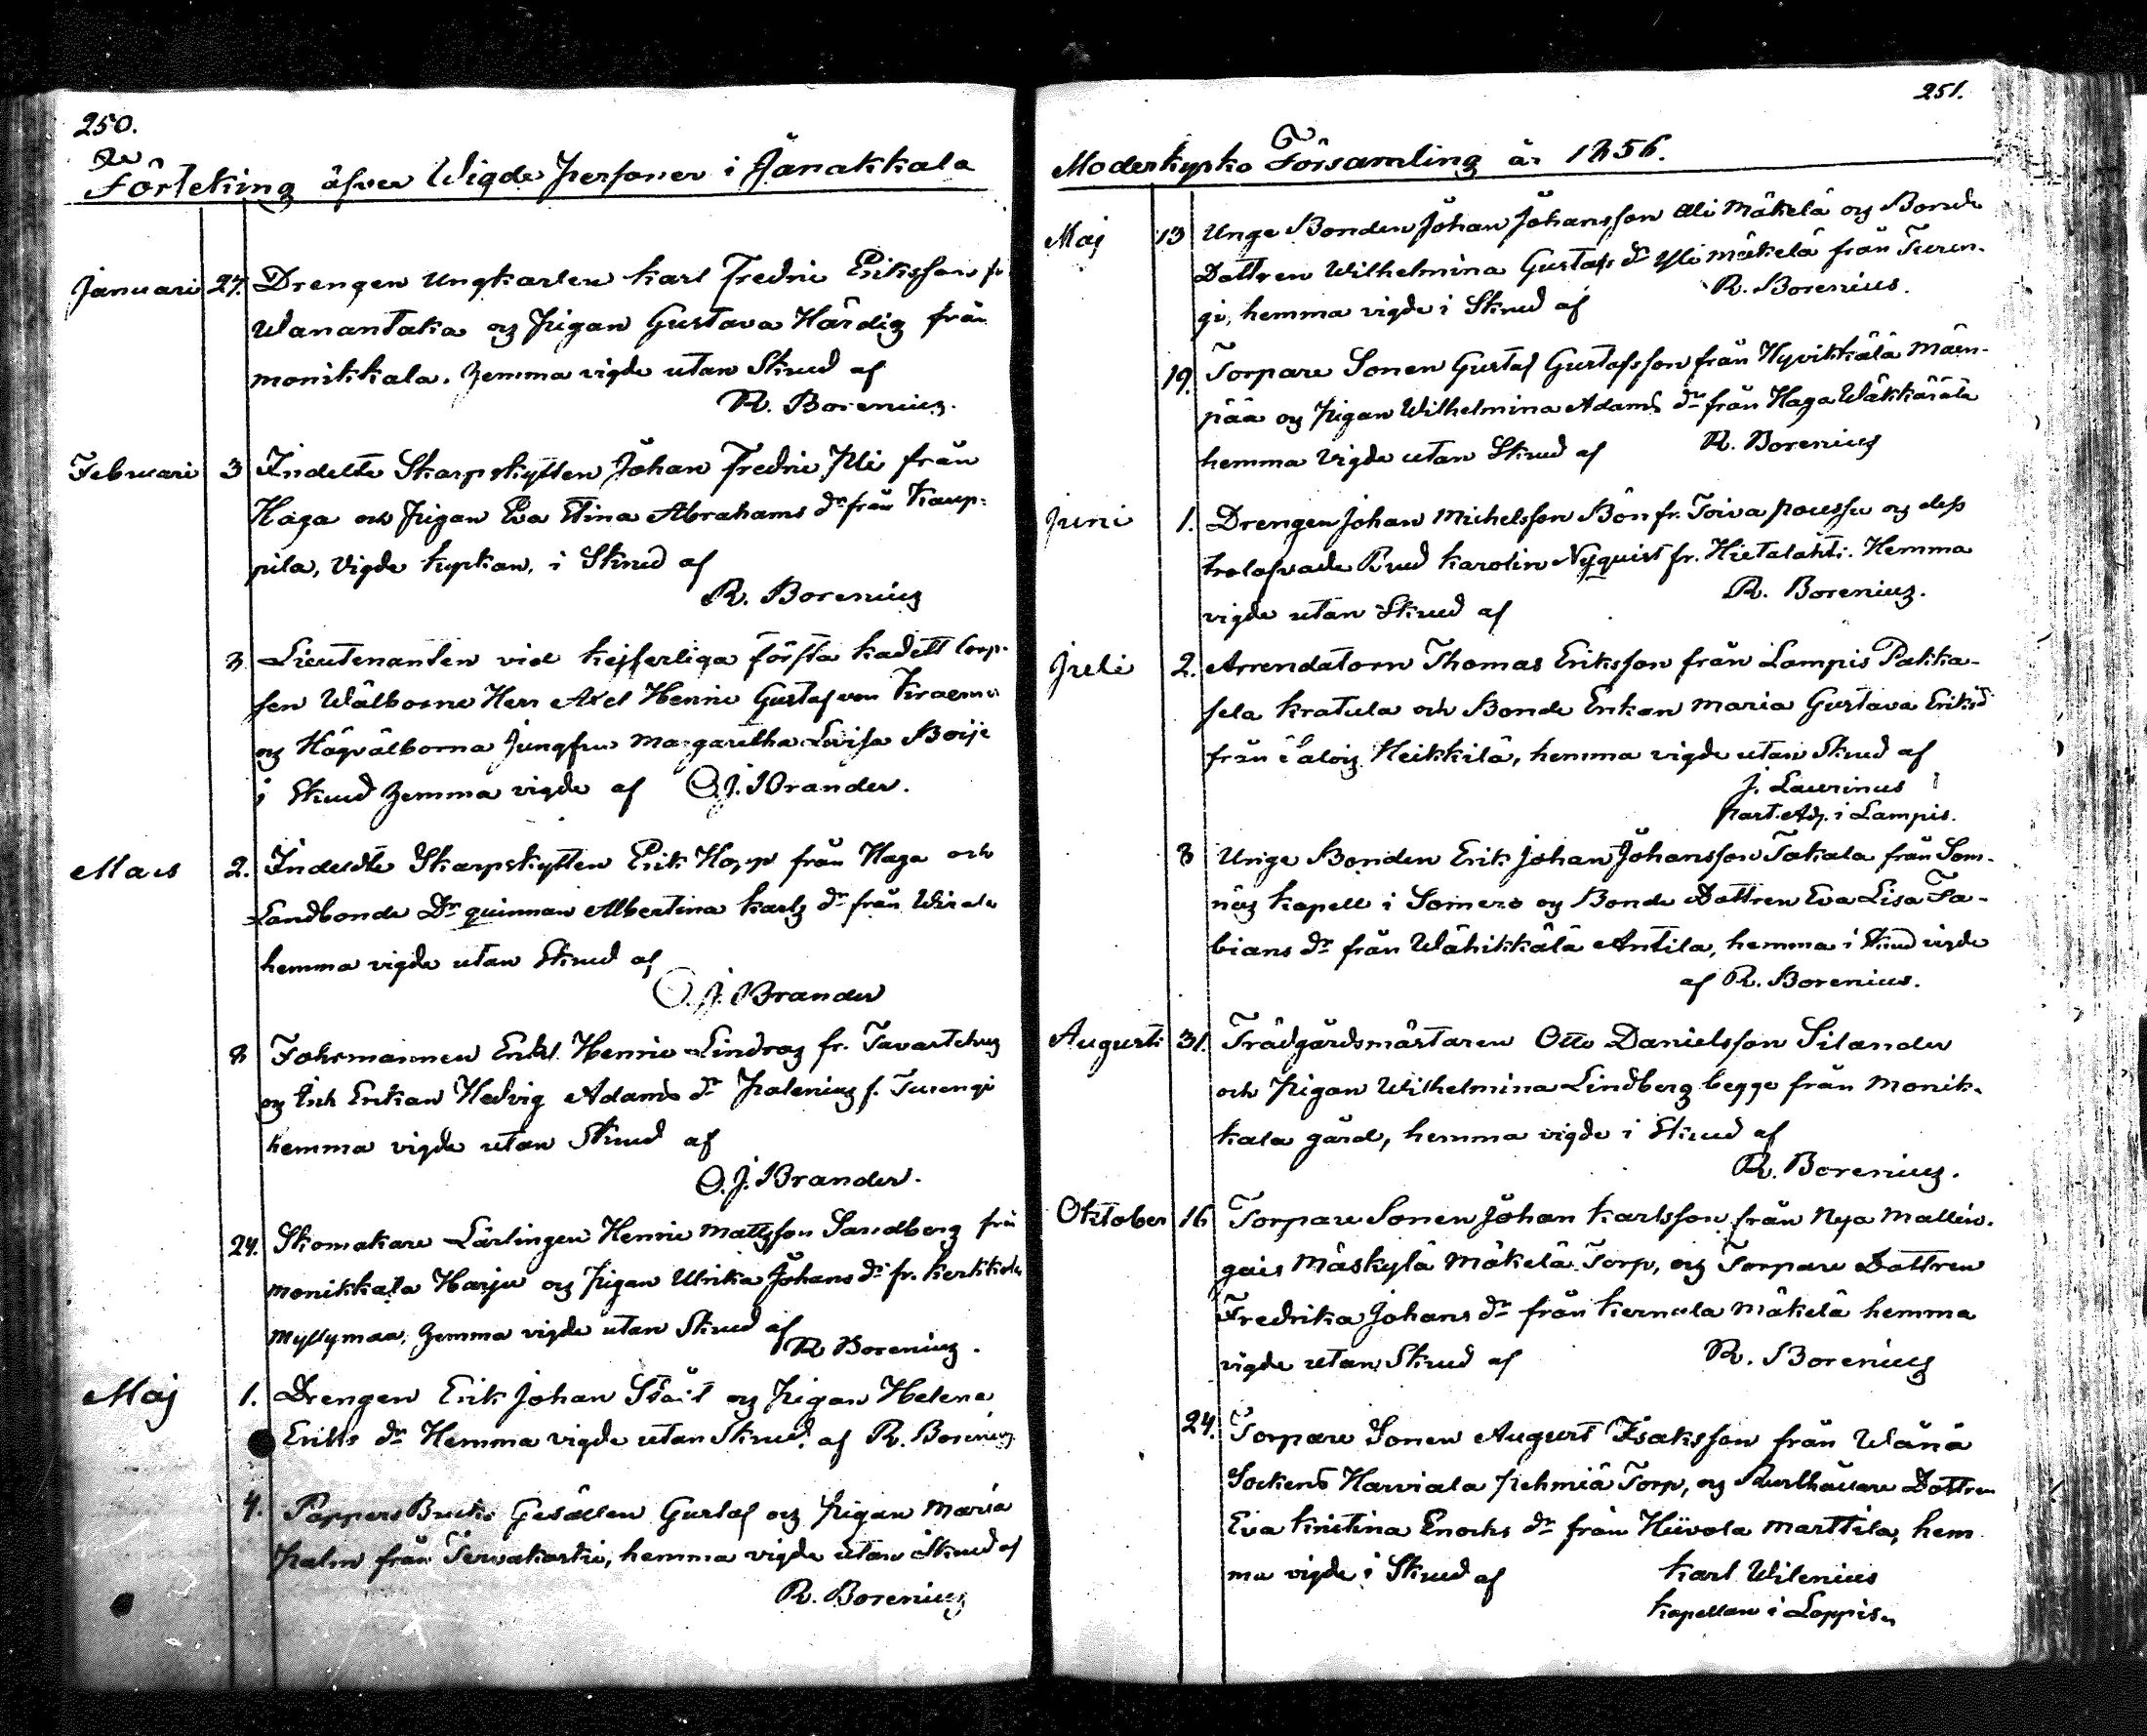 250.
Förteking öfver Wigde Personer i Janakkala
Januari 27. Drengen Ungkarlen Karl Fredric Eriksson fr
Wanantaka og Pigan Gustava Härdig från
Monikkala. Hemma vigde utan Skrud af
R. Borenius.
Februari 3 Indelte Skarpskytten Johan Fredric Pli från
Haga och Pigan Eva Stina Abrahams dr från Kaup-
pila, Vigde kyrkan, i Skrud af
R. Borenius
3. Lieutenanten vid kejserliga första kadett Corp-
sen Wälborne Herr Axel Henric Gustaf von Kraemer
og Högvälborna Jungfru Margaretha Lovisa Boije
i Skrud Hemma vigde af O. J. Brander.
Mars 2. Indeldte Skarpskytten Erik Hopp från Haga och
Landbonde Dr quinnan Albertina Karls dr från Wirala
hemma vigde utan Skrud af
O. J. Brander
8 Forsmannen Enkl. Henric Lindroz fr. Tavastehus
og Enkan Hedvig Adams dr Palenius f. Turengi
hemma vigde utan Skrud af
O. J. Brander.
24. Skomakare Lärlingen Henric Mattsson Sandberg från
Monikkala Harju og Pigan Ulrika Johans dr fr. Kerkkola
Myllymaa, Hemma vigde utan Skrud af
R. Borenius.
Maj 1. Drengen Erik Johan Stål og Pigan Helena
Eriks dr Hemma vigde utan Skrud af R. Borenius
4. Pappers Bruks Gesällen Gustaf og Pigan Maria
Palm från Tervakoski, hemma vigde utan Skrud af
R. Borenius
251.
Moderkyrko Församling år 1856.
Maj 13 Unge Bonden Johan Johansson Ali Mäkelä og Bonde
Dottren Wilhelmina Gustafs dr Yli Mäkelä från Turen-
gi, hemma vigde i Skrud af R. Borenius.
19. Torpare Sonen Gustaf Gustafsson från Hyvikkälä Mäen-
pää og Pigan Wilhelmina Adams dr från Haga Wäkkärälä
hemma Vigde utan Skrud af R. Borenius
Juni 1. Drengen Johan Michelsson Bön fr. Toiva og dess
trolofvade Brud Karolin Nyquist fr. Hietalahti. Hemma
vigde utan Skrud af R. Borenius.
Juli 2. Arrendatorn Thomas Eriksson från Lampis Pakka-
sela Kratula och Bonde Enkan Maria Gustava Eriksd
från Heikkilä, hemma vigde utan Skrud af
J. Laurinus
Past. Adj. i Lampis.
8 Unge Bonden Erik Johan Johansson Takala från Som-
näs Kapell i Somero og Bonde Dottren Eva Lisa Fa-
bians dr från Wähikkälä Antila, hemma i Skrud vigde
af R. Borenius.
Augusti 31. Trädgårdsmästaren Otto Danielsson Silander
och Pigan Wilhelmina Lindberg begge från Monik-
kala gård, hemma vigde i Skrud af
R. Borenius.
Oktober 16 Torpare Sonen Johan Karlsson från Nya Mallin-
gais Mäskylä Mäkelä Torp, og Torpare Dottren
Fredrika Johans dr från Kernala Mäkelä hemma
vigde utan Skrud af R. Borenius
24. Torpare Sonen August Isaksson från Wånå
Sockens Harviala Pehmiä Torp, og Dottren
Eva Kristina Enochs dr från Hiivola Marttila, hem
ma vigde i Skrud af Karl Wilenius
Kapellan i Loppis